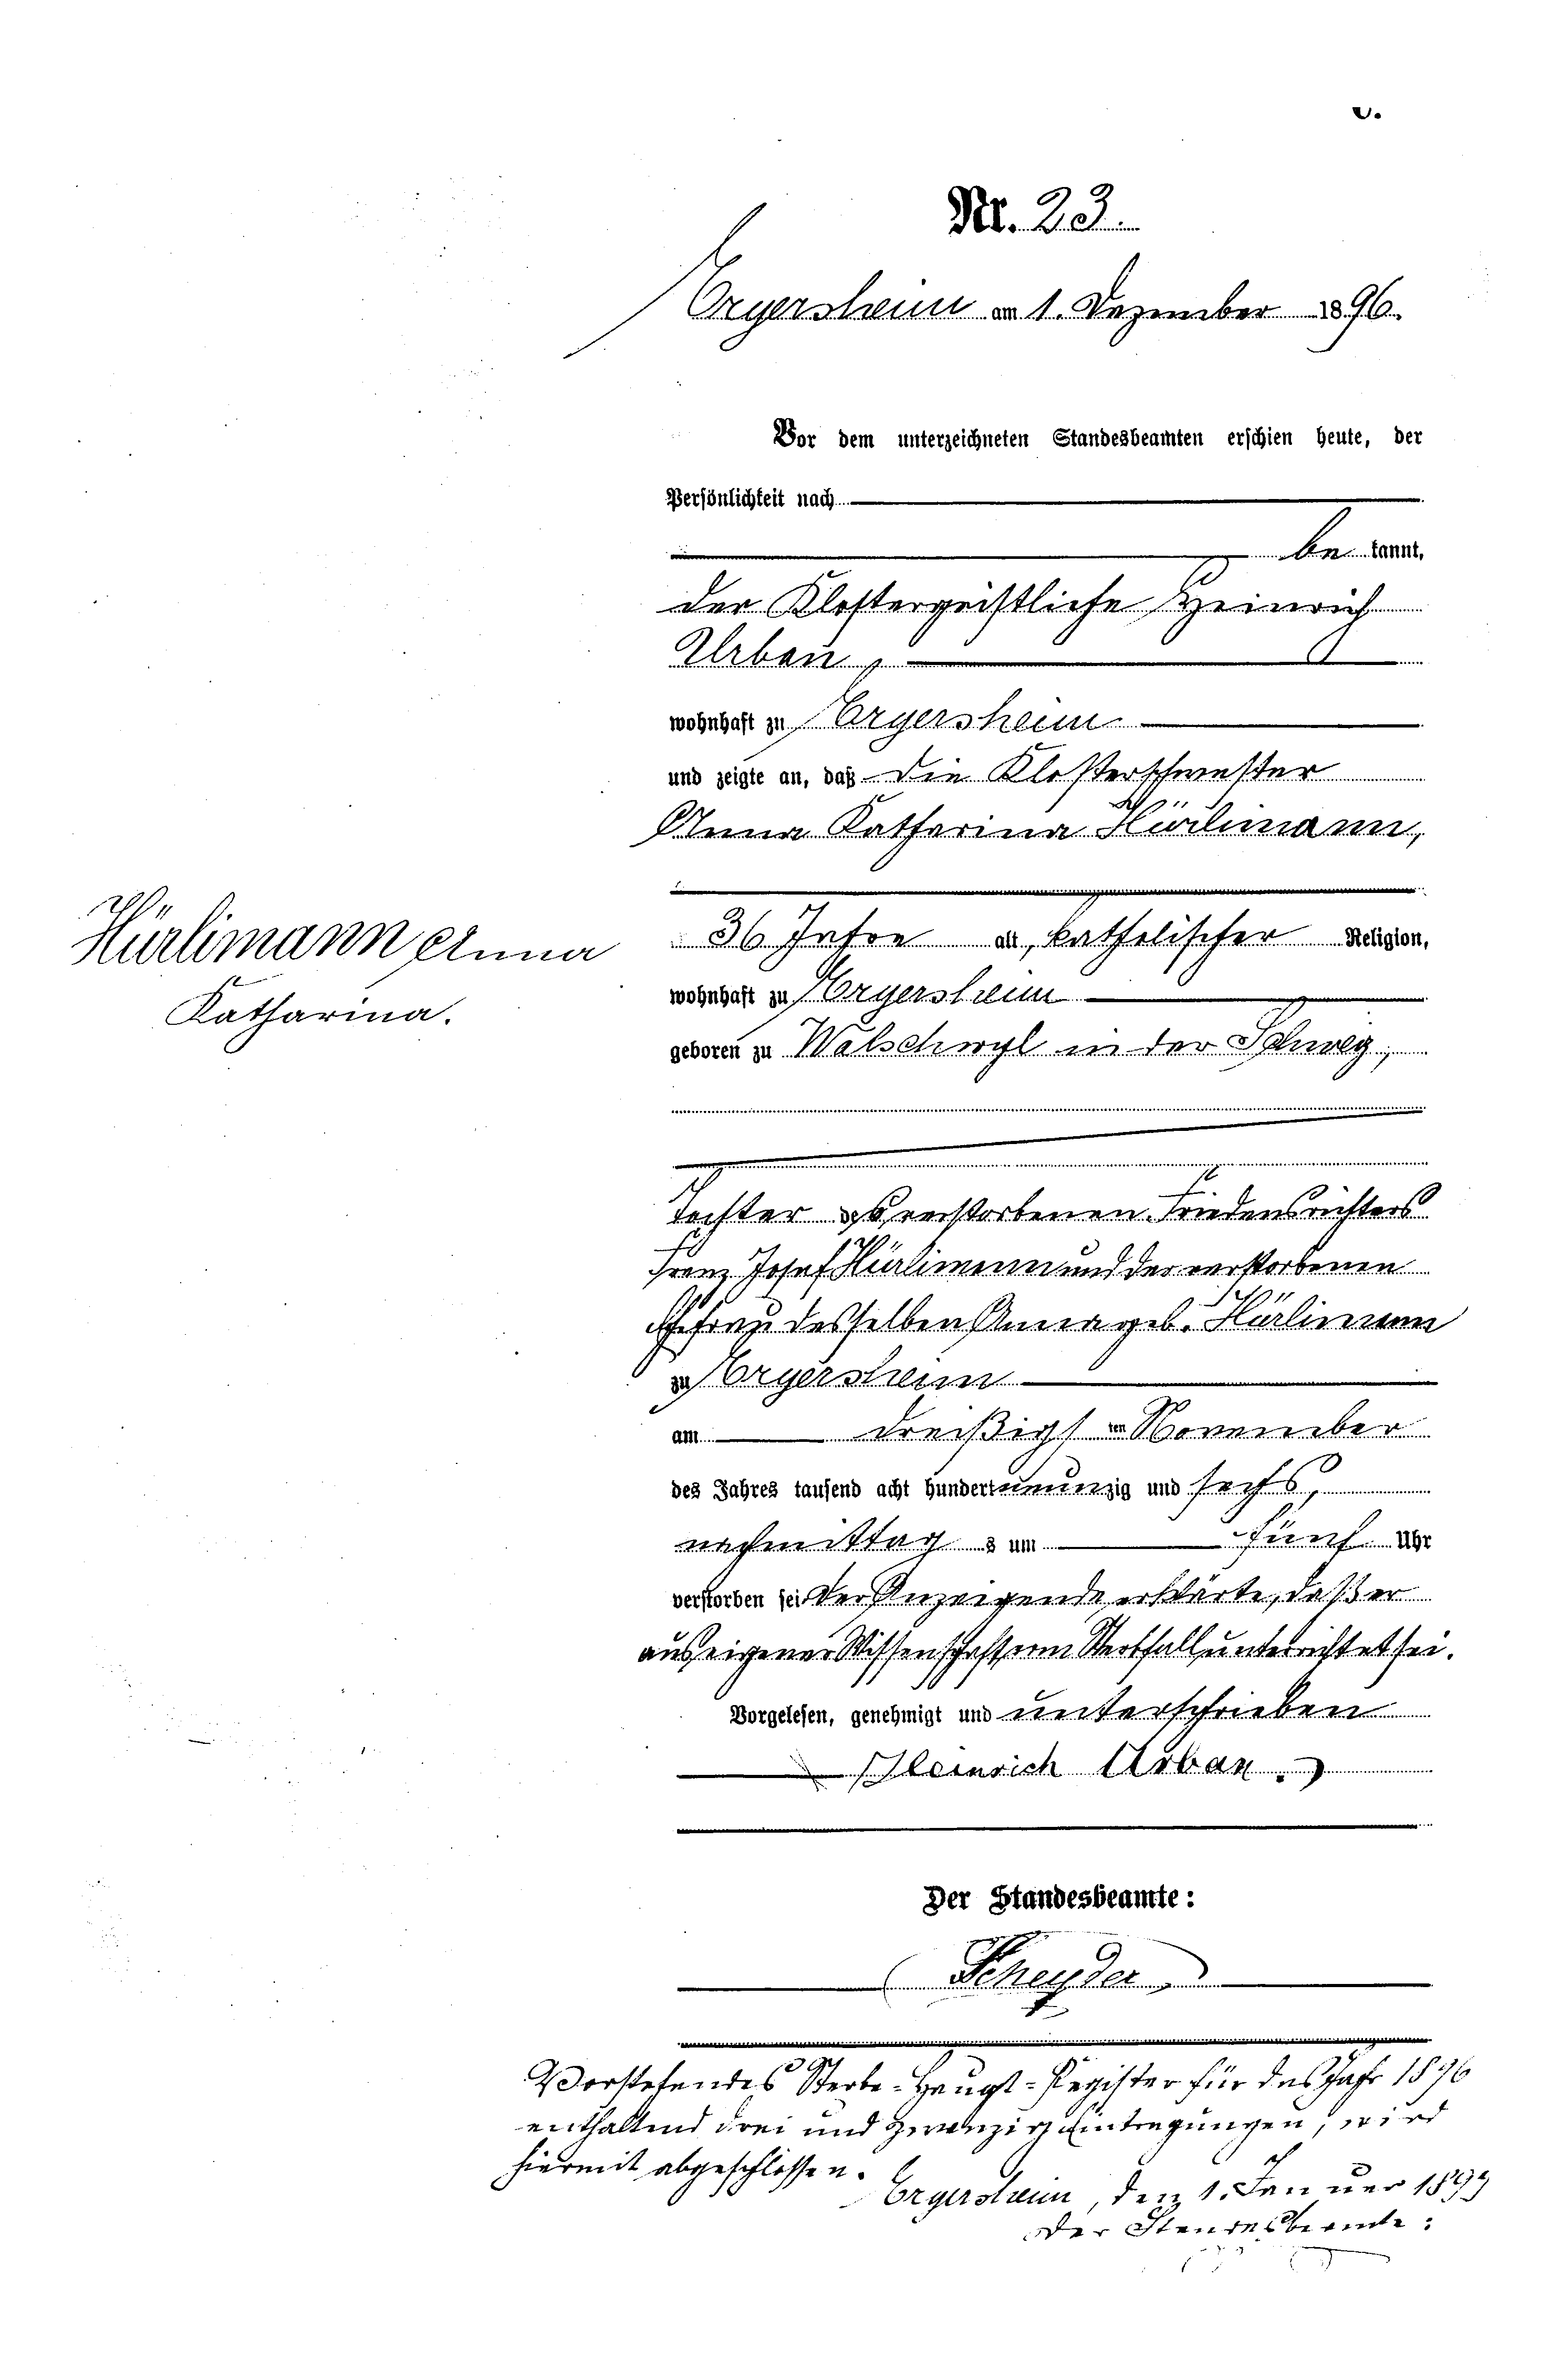 Nr. 23.
Ergersheim am 1. Dezember 1896.
Vor dem unterzeichneten Standesbeamten erschien heute, der
Persönlichkeit nach
be kannt,
der Klostergeistliche Heinrich
Urban,
wohnhaft zu Ergersheim
und zeigte an, daß die Klosterschwester
Anna Katharina Hürlimann,
Hürlimann Anna
Katharina.
36 Jahre alt, katholischer Religion,
wohnhaft zu Ergersheim
geboren zu Walschwyl in der Schweiz,
Tochter des verstorbenen Friedensrichters
Franz Josef Hürlimann und der verstorbenen
Ehefrau desselben Anna geb. Hürlimann
zu Ergersheim
am dreißigsten November
des Jahres tausend acht hundert neunzig und sechs,
nachmittags um fünf Uhr
verstorben sei Der Anzeigende erklärte, daß er
aus eigener Wissenschaft vom Sterbfall unterrichtet sei.
Vorgelesen, genehmigt und unterschrieben
Heinrich Urban.
Der Standesbeamte:
Scheyder
Vorstehendes Sterbe-Haupt-Register für das Jahr 1896
enthaltend drei und zwanzig Eintragungen, wird
hiermit abgeschlossen.
Ergersheim, den 1. Januar 1897
Der Standesbeamte: